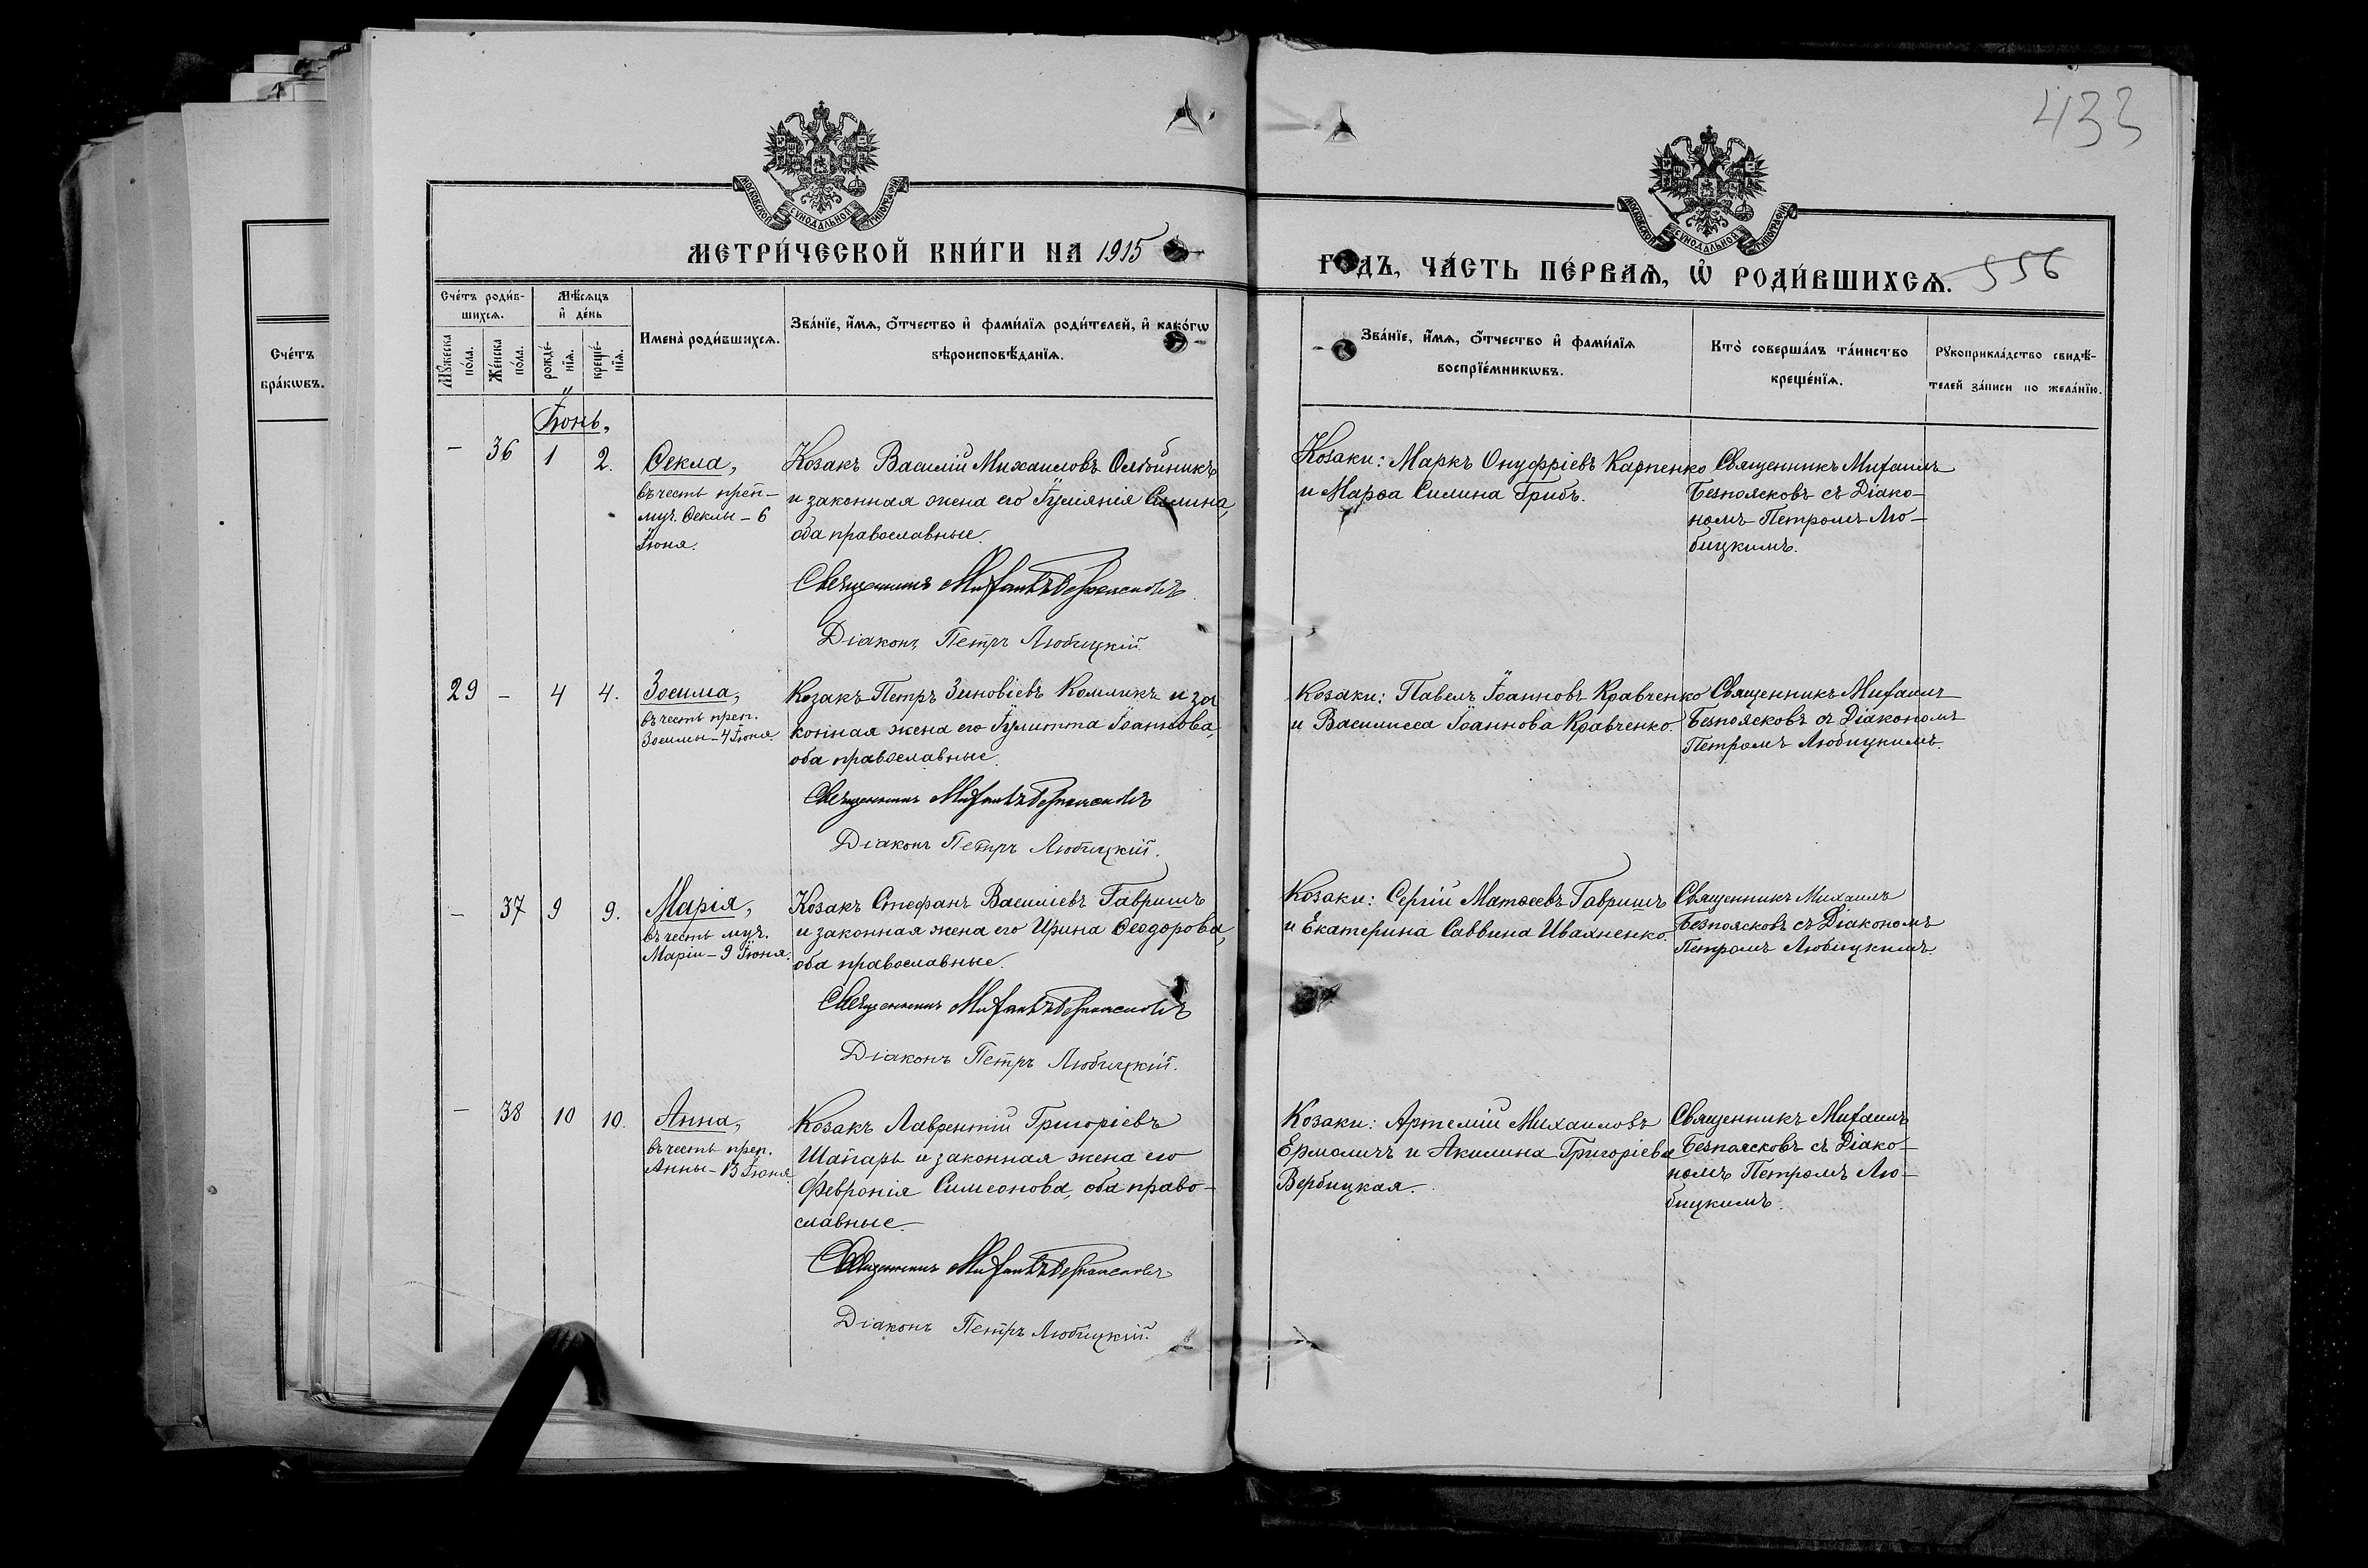 433
МОСКОВСКОЙ СѴНОДАЛЬНОЙ ТИПОГРАФІИ
МОСКОВСКОЙ СѴНОДАЛЬНОЙ ТИПОГРАФІИ
МЕТРИ́ЧЕСКОЙ КНИ́ГИ НА 1915
ГОДЪ, ЧА́СТЬ ПЕ́РВАѦ, Ѡ҆ РОДИ́ВШИХСѦ. 556
Сче́тъ
бра́кѡвъ.
Сче́тъ роди́в-
шихсѧ.
Мꙋ́жеска
по́ла.
Же́нска
по́ла.
Мѣ́сѧцъ
и҆ де́нь
рожде́-
нїѧ.
креще́-
нїѧ.
Имена̀ роди́вшихсѧ.
Зва́нїе, и҆́мѧ, ѻ҆́тчество и҆ фами́лїѧ роди́телей, и҆ како́гѡ
вѣроисповѣ́данїѧ.
Зва́нїе, и҆́мѧ, ѻ҆́тчество и҆ фами́лїѧ
воспрїе́мникѡвъ.
Кто̀ соверша́лъ та́инство
креще́нїѧ.
Рꙋкоприкла́дство свидѣ́-
телей за́писи по жела́нїю.
Іюнь,
— 36 1 2.
Ѳекла,
въ честь преп-
муч. Ѳеклы – 6
Іюня.
Козакъ Василій Михаиловъ Олѣйникъ
и законная жена его Іуліанія Силина,
оба православные.
Священникъ Михаилъ Безпоясковъ
Діаконъ Петръ Любицкій.
Козаки: Маркъ Онуфріевъ Карпенко
и Марѳа Силина Грибъ.
Священникъ Михаилъ
Безпоясковъ съ Діако-
номъ Петромъ Лю-
бицкимъ.
29 — 4 4.
Зосима,
въ честь преп.
Зосимы – 4 Іюня.
Козакъ Петръ Зиновіевъ Комликъ и за
конная жена его Іулитта Іоаннова,
оба православные.
Священникъ Михаилъ Безпоясковъ
Діаконъ Петръ Любицкій.
Козаки: Павелъ Іоанновъ Кравченко
и Василисса Іоаннова Кравченко.
Священникъ Михаилъ
Безпоясковъ съ Діакономъ
Петромъ Любицкимъ.
— 37 9 9.
Марія,
въ честь муч.
Маріи – 9 Іюня.
Козакъ Стефанъ Василіевъ Гавришъ
и законная жена его Ирина Ѳеодорова,
оба православные.
Священникъ Михаилъ Безпоясковъ
Діаконъ Петръ Любицкій.
Козаки: Сергій Матѳеевъ Гавришъ
и Екатерина Саввина Ивахненко.
Священникъ Михаилъ
Безпоясковъ съ Діакономъ
Петромъ Любицкимъ.
— 38 10 10.
Анна,
въ честь преп.
Анны – 13 Іюня
Козакъ Лаврентій Григоріевъ
Шапарь и законная жена его
Февронія Симеонова, оба право-
славные.
Священникъ Михаилъ Безпоясковъ
Діаконъ Петръ Любицкій.
Козаки: Артемій Михаиловъ
Ермоличъ и Акилина Григоріева
Вербицкая.
Священникъ Михаилъ
Безпоясковъ съ Діако-
номъ Петромъ Лю-
бицкимъ.